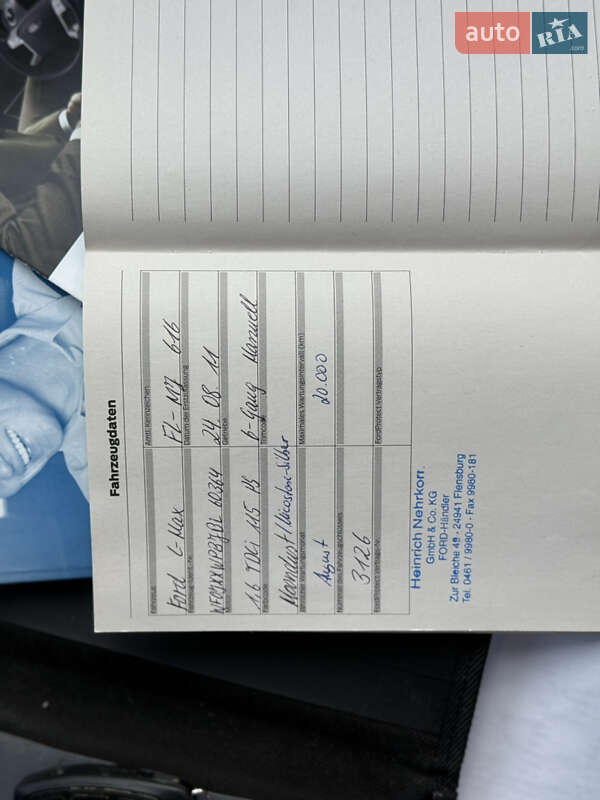 auto RIA.com
Fahrzeugdaten
Fahrzeug
Ford C-Max
Amtl. Kennzeichen
FL-MJ 616
Fahrzeug-Ident.-Nr.
Datum der Erstzulassung
24 08 11
1,6 TDCi 115 PS
Getriebe
6-Gang Manuell
Farbcode
Trimcode
Jährlicher Wartungsmonat
August
Maximales Wartungsintervall (km)
20.000
Nummer des Fahrzeugschlüssels
3126
FordProtect Vertrags-Nr.
FordProtect Vertragstyp
Heinrich Nehrkorn
GmbH & Co. KG
FORD-Händler
Zur Bleiche 49 - 24941 Flensburg
Tel. 0461 / 9980-0 - Fax 9980-181